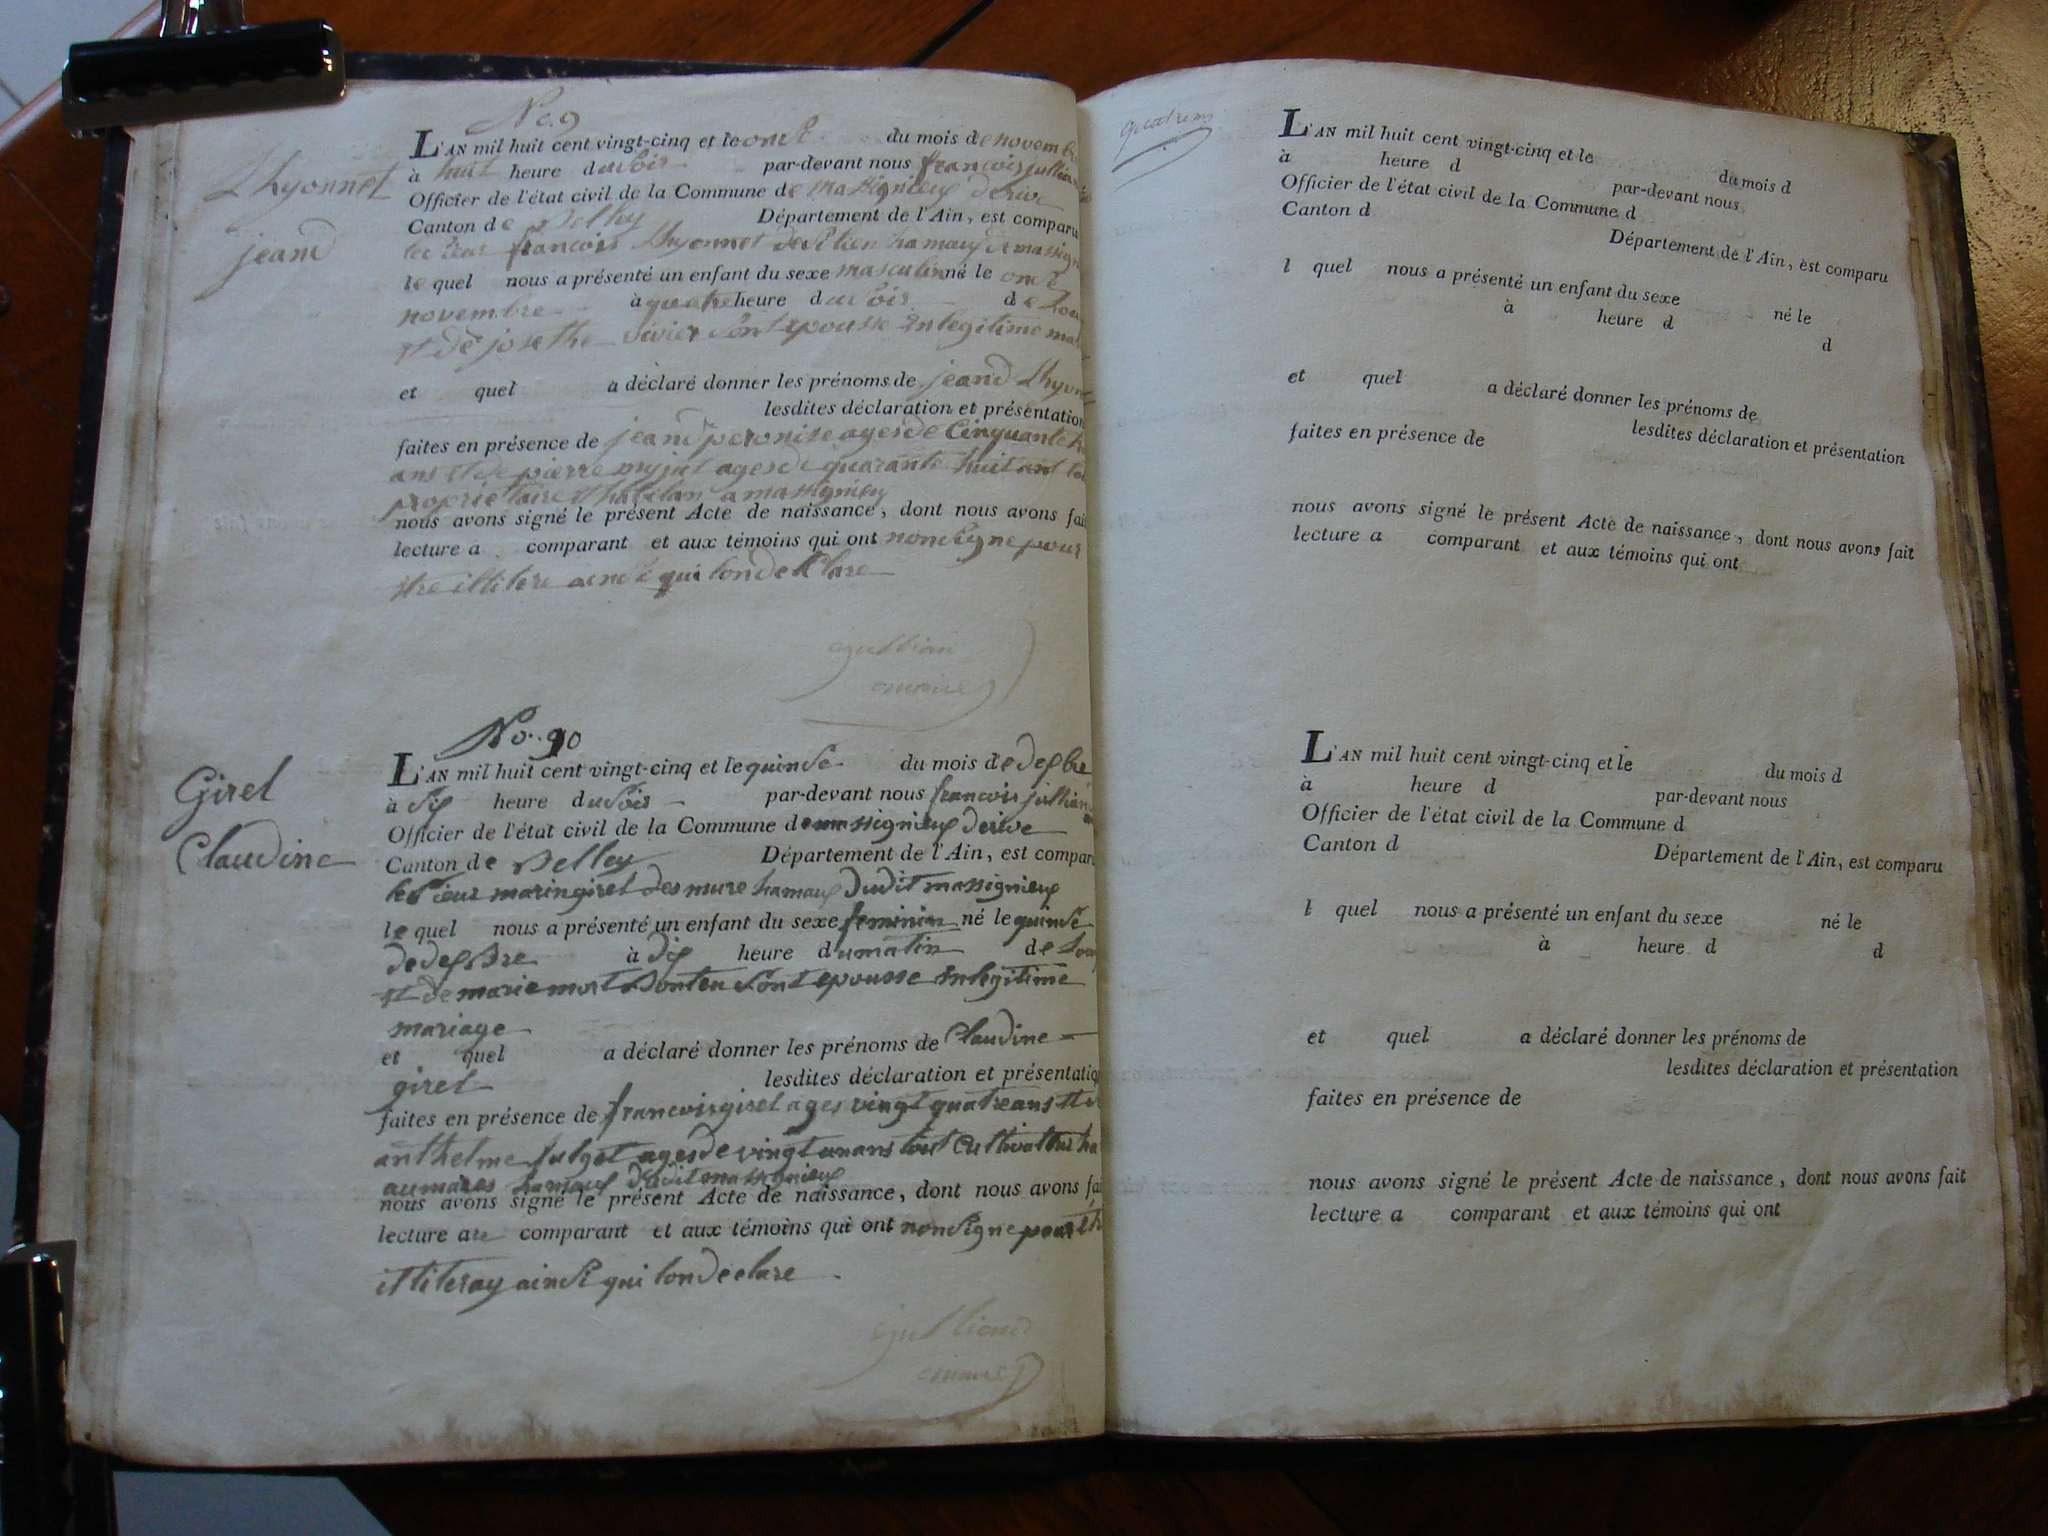 No. 9
Lhyonnet
jeand
L'AN mil huit cent vingt-cinq et le onse du mois de novembre
à huit heure du soir par-devant nous françois jullian
Officier de l'état civil de la Commune de massignieux derive
Canton de Belley Département de l'Ain, est comparu
françois Lhyonnet hamaux de massign
le quel nous a présenté un enfant du sexe masculin né le onse
novembre à quatre heure du soir de
et de josethe vivier sont epousse en legitime
et quel a déclaré donner les prénoms de jeand Lhyon
lesdites déclaration et présentation
faites en présence de jeand peronise ages de Cinquante
ans et de pierre myjat ages de quarante huit ans
proprietaire a massignieu
nous avons signé le présent Acte de naissance, dont nous avons fai
lecture a comparant et aux témoins qui ont non signe pour
stre illitere ainse qui lon declare
jullian
maire
No. 90
Girel
Claudine
L'AN mil huit cent vingt-cinq et le quinse du mois de desbre
à six heure du soir par-devant nous francois jullian
Officier de l'état civil de la Commune de massignieux derive
Canton de Belley Département de l'Ain, est compar
le sieur marin girel des mure hamaux dudit massignieux
le quel nous a présenté un enfant du sexe feminin né le quinse
de desbre à dix heure du matin de
et de marie mort Bonteu sont epousse en legitime
mariage
et quel a déclaré donner les prénoms de Claudine
girel
lesdites déclaration et présentatio
faites en présence de francois girel ages vingt quatre ans et
anthelme ages de vingt un ans tout cultivatur
hamaux dudit massignieux
nous avons signé le présent Acte de naissance, dont nous avons fa
lecture a comparant et aux témoins qui ont non signe pour
illiteray ainsi qui lon declare
julliand
maire
L'AN mil huit cent vingt-cinq et le du mois d
à heure d par-devant nous
Officier de l'état civil de la Commune d
Canton d Département de l'Ain, est comparu
l quel nous a présenté un enfant du sexe né le
à heure d d
et quel a déclaré donner les prénoms de
lesdites déclaration et présentation
faites en présence de
nous avons signé le présent Acte de naissance, dont nous avons fait
lecture a comparant et aux témoins qui ont
L'AN mil huit cent vingt-cinq et le du mois d
à heure d par-devant nous
Officier de l'état civil de la Commune d
Canton d Département de l'Ain, est comparu
l quel nous a présenté un enfant du sexe né le
à heure d d
et quel a déclaré donner les prénoms de
lesdites déclaration et présentation
faites en présence de
nous avons signé le présent Acte de naissance, dont nous avons fait
lecture a comparant et aux témoins qui ont